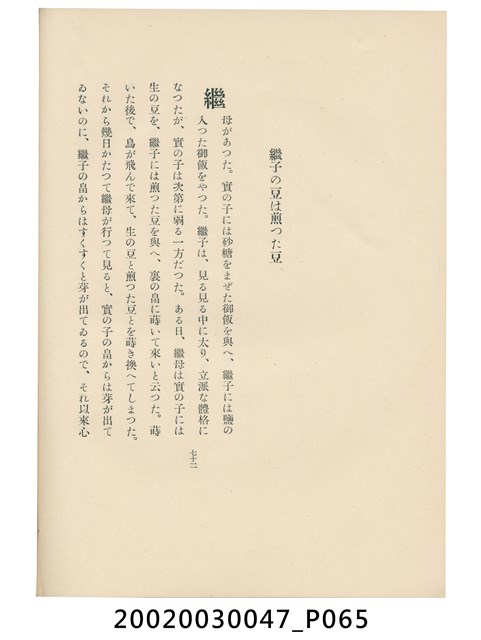 繼子の豆は煎つた豆
繼母があつた。實の子には砂糖をまぜた御飯を與へ、繼子には鹽の
入つた御飯をやつた。繼子は、見る見る中に太り、立派な體格に
なつたが、實の子は次第に弱る一方だつた。ある日、繼母は實の子には
生の豆を、繼子には煎つた豆を與へ、裏の畠に蒔いて來いと云つた。蒔
いた後で、鳥が飛んで來て、生の豆と煎つた豆とを蒔き換へてしまつた。
それから幾日かたつて繼母が行つて見ると、實の子の畠からは芽が出て
ゐないのに、繼子の畠からはすくすくと芽が出てゐるので、それ以來心
七十二
20020030047_P065